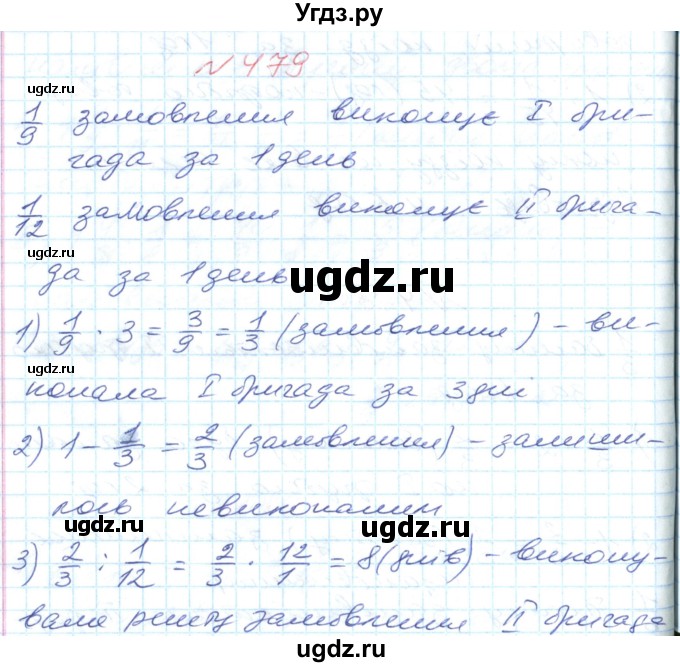 Угдз.ру
№ 479
ugdz.ru
1/9 замовлення виконує I бри-
гада за 1 день
ugdz.ru
1/12 замовлення виконує II брига-
ugdz.ru
да за 1 день
ugdz.ru
1) 1/9 · 3 = 3/9 = 1/3 (замовлення) - ви-
ugdz.ru
конала I бригада за 3 дні
2) 1 - 1/3 = 2/3 (замовлення) - залиши-
лось невиконаним
ugdz.ru
ugdz.ru
3) 2/3 : 1/12 = 2/3 · 12/1 = 8 (днів) - викону-
вала решту замовлення II бригада
ugdz.ru
ugdz.ru